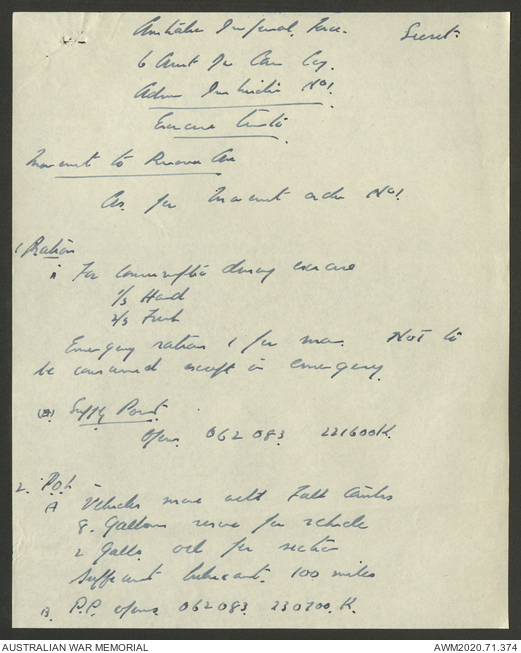 Australian Imperial Force. Secret.
6 Aust Div Cav
Adm Instruction No 1.
Exercise
Movement to Area
As per Movement order No 1.
1 Ration
A For consumption during exercise
1/3 Hard
2/3 Fresh
Emergency rations 1 per man. Not to
be consumed except in emergency.
(B) Supply Point.
Opens 062083 221600K.
2. P.O.L
A Vehicles move with Full tanks
8. Gallons reserve per vehicle
2 Galls. oil per section
Sufficient lubricant. 100 miles
B. P.P. opens 062083. 230700.K.
AUSTRALIAN WAR MEMORIAL
AWM2020.71.374